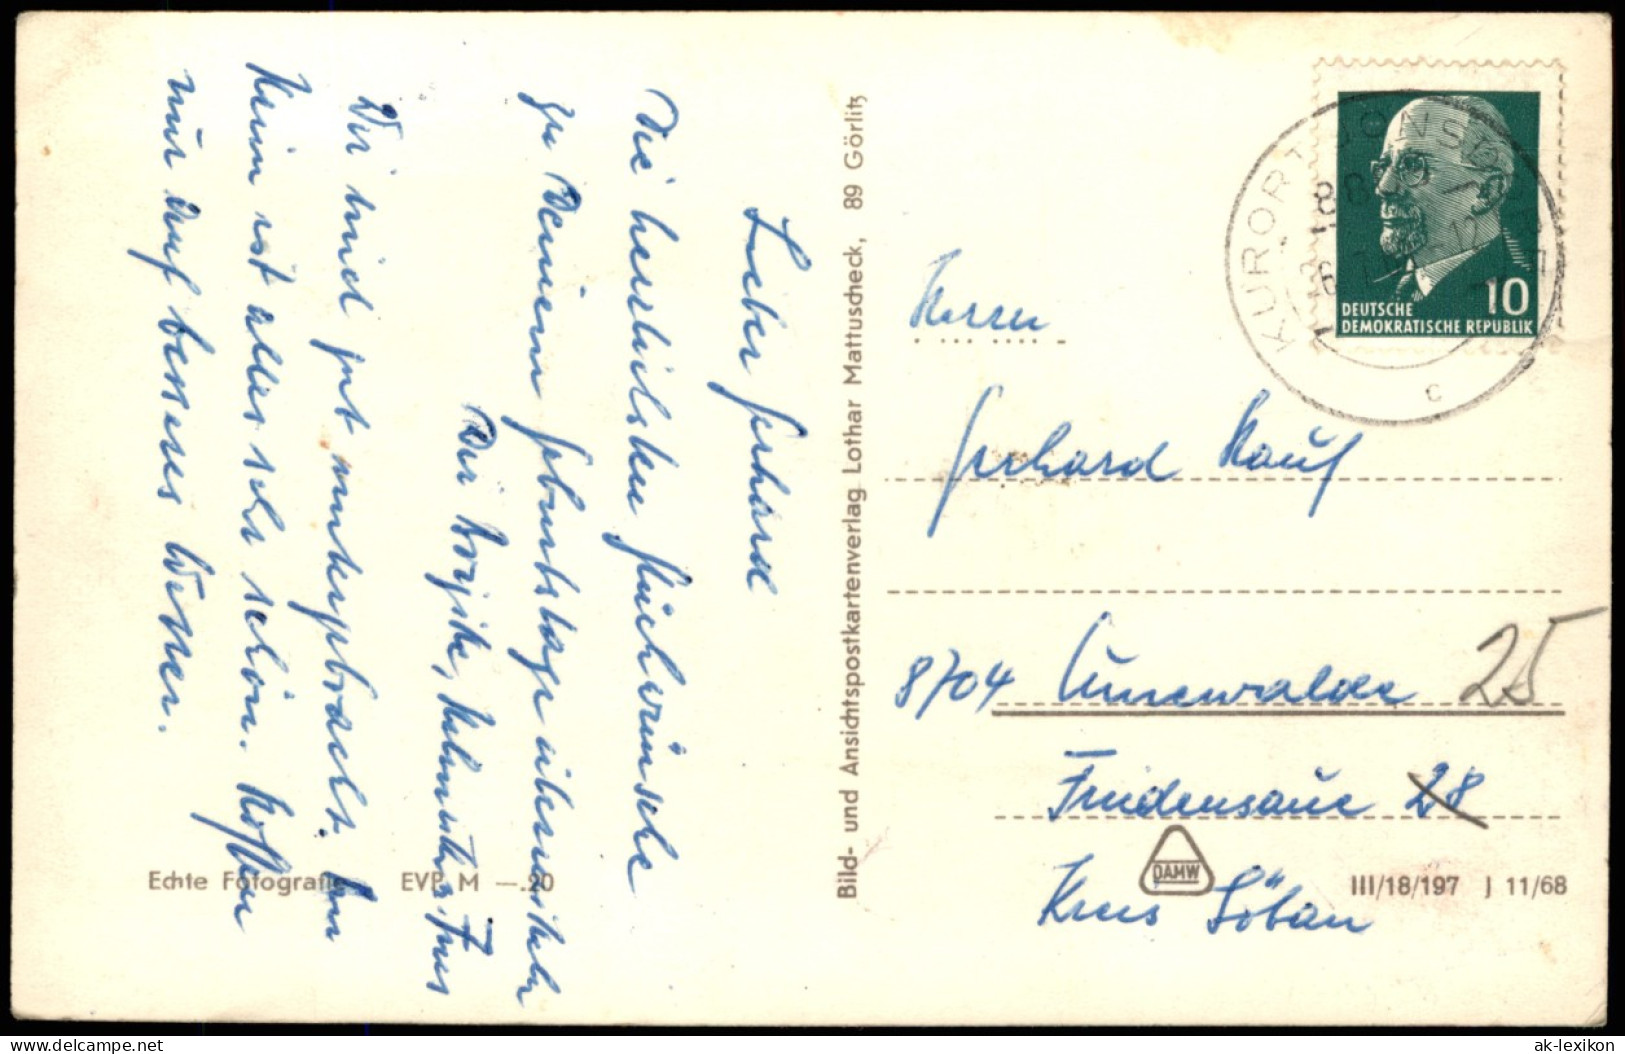 Lieber Gerhard
Die herzlichsten Glückwünsche
zu Deinem Geburtstage übermitteln
Dir
Wir sind gut untergebracht. Am
Heim ist alles sehr schön. Hoffen
nur auf besseres Wetter.
Echte Fotografie EVP M —.20
Bild- und Ansichtspostkartenverlag Lothar Mattuscheck, 89 Görlitz
KURORT JONSDORF
88
c
10
DEUTSCHE
DEMOKRATISCHE REPUBLIK
Herrn
Gerhard Kauf
8704 Cunewalde 25
Friedensaue 28
DAMW
III/18/197 J 11/68
Kreis Löbau
delcampe.net
ak-lexikon